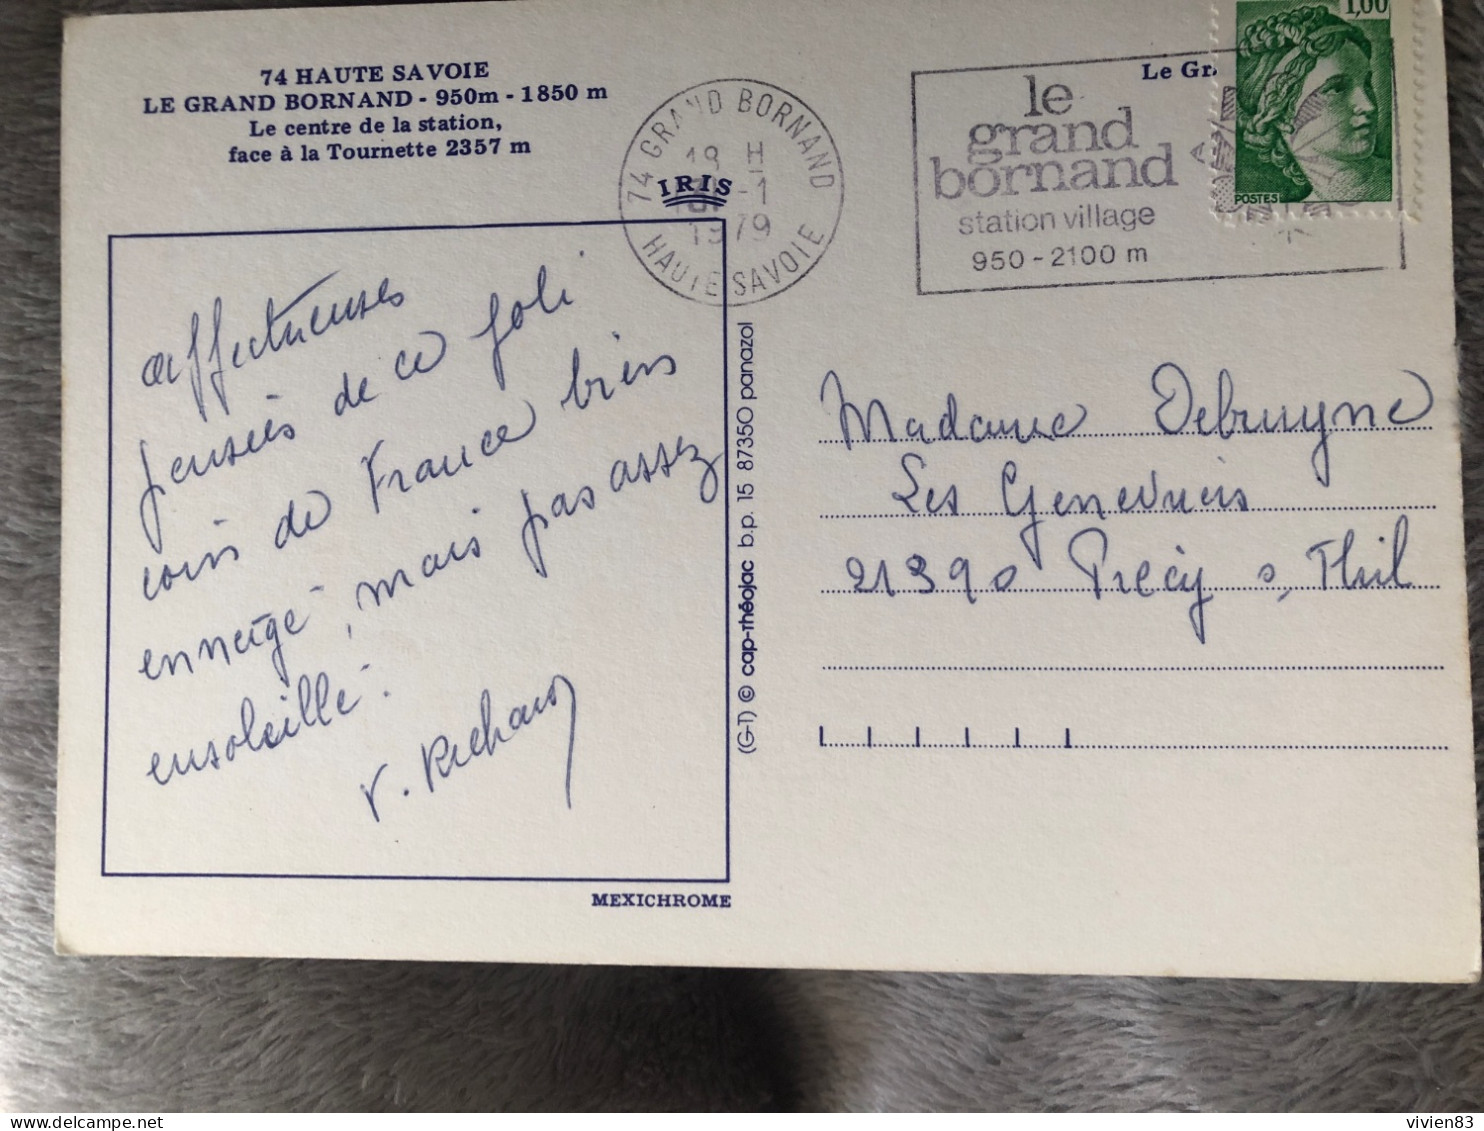 74 HAUTE SAVOIE
LE GRAND BORNAND - 950m - 1850 m
Le centre de la station,
face à la Tournette 2357 m
IRIS
74 GRAND BORNAND
18 H
-1
1979
HAUTE SAVOIE
Le Gr
le
grand
bornand
station village
950 - 2100 m
1,00
POSTES
affectueuses
pensées de ce joli
coin de France bien
enneigé, mais pas assez
ensoleillé.
V. Richard
(G-1) © cap-théojac b.p. 15 87350 panazol
MEXICHROME
Madame Debruyne
Les Genevriers
21390 Précy s, Thil
vivien83